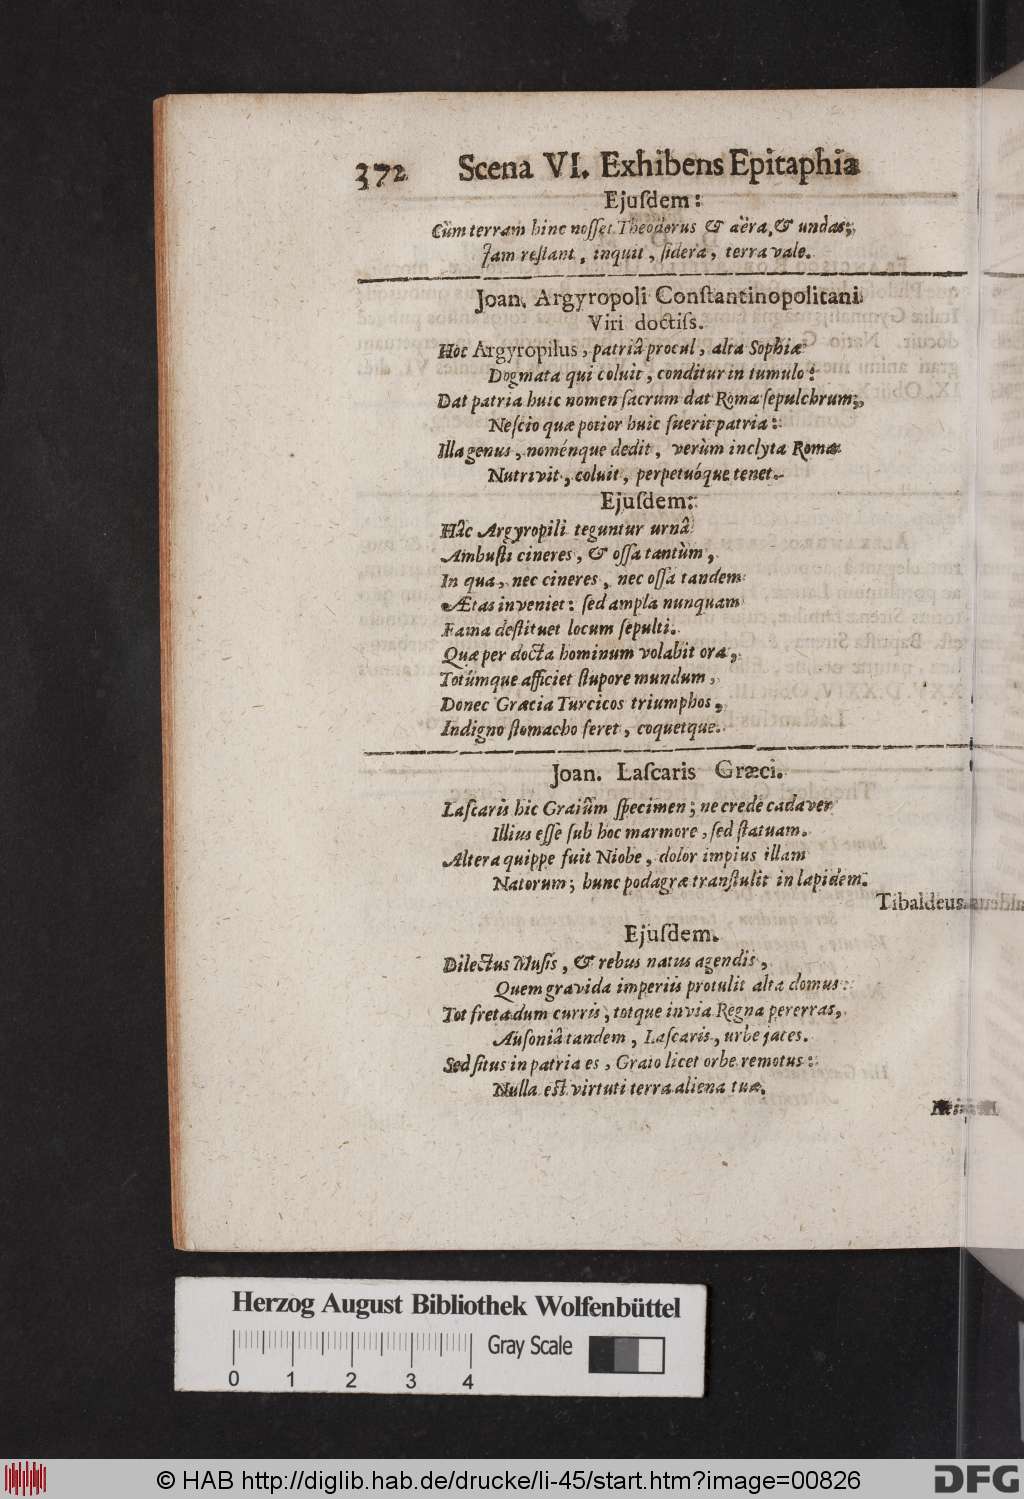 372 Scena VI. Exhibens Epitaphia
Ejuſdem:
Cùm terram hinc noſſet Theodorus & aëra, & undas;
Jam reſtant, inquit, ſidera, terra vale.
Joan. Argyropoli Conſtantinopolitani
Viri doctiſs.
Hoc Argyropilus, patriâ procul, alta Sophiæ
Dogmata qui coluit, conditur in tumulo:
Dat patria huic nomen ſacrum dat Roma ſepulchrum;
Neſcio quæ potior huic fuerit patria:
Illa genus, noménque dedit, verùm inclyta Roma
Nutrivit, coluit, perpetuóque tenet.
Ejuſdem:
Hâc Argyropili teguntur urnâ
Ambuſti cineres, & oſſa tantùm,
In qua, nec cineres, nec oſſa tandem
Ætas inveniet: ſed ampla nunquam
Fama deſtituet locum ſepulti.
Quæ per docta hominum volabit ora,
Totúmque afficiet ſtupore mundum,
Donec Græcia Turcicos triumphos,
Indigno ſtomacho feret, coquetque.
Joan. Laſcaris Græci.
Laſcaris hic Graiûm ſpecimen; ne crede cadaver
Illius eſſe ſub hoc marmore, ſed ſtatuam.
Altera quippe fuit Niobe, dolor impius illam
Natorum; hunc podagræ tranſtulit in lapidem.
Tibaldeus.
Ejuſdem.
Dilectus Muſis, & rebus natus agendis,
Quem gravida imperiis protulit alta domus:
Tot freta dum curris, totque invia Regna pererras,
Auſoniâ tandem, Laſcaris, urbe jaces.
Sed ſitus in patria es, Graio licet orbe remotus:
Nulla eſt virtuti terra aliena tuæ.
Herzog August Bibliothek Wolfenbüttel
Gray Scale
0 1 2 3 4
© HAB http://diglib.hab.de/drucke/li-45/start.htm?image=00826
DFG